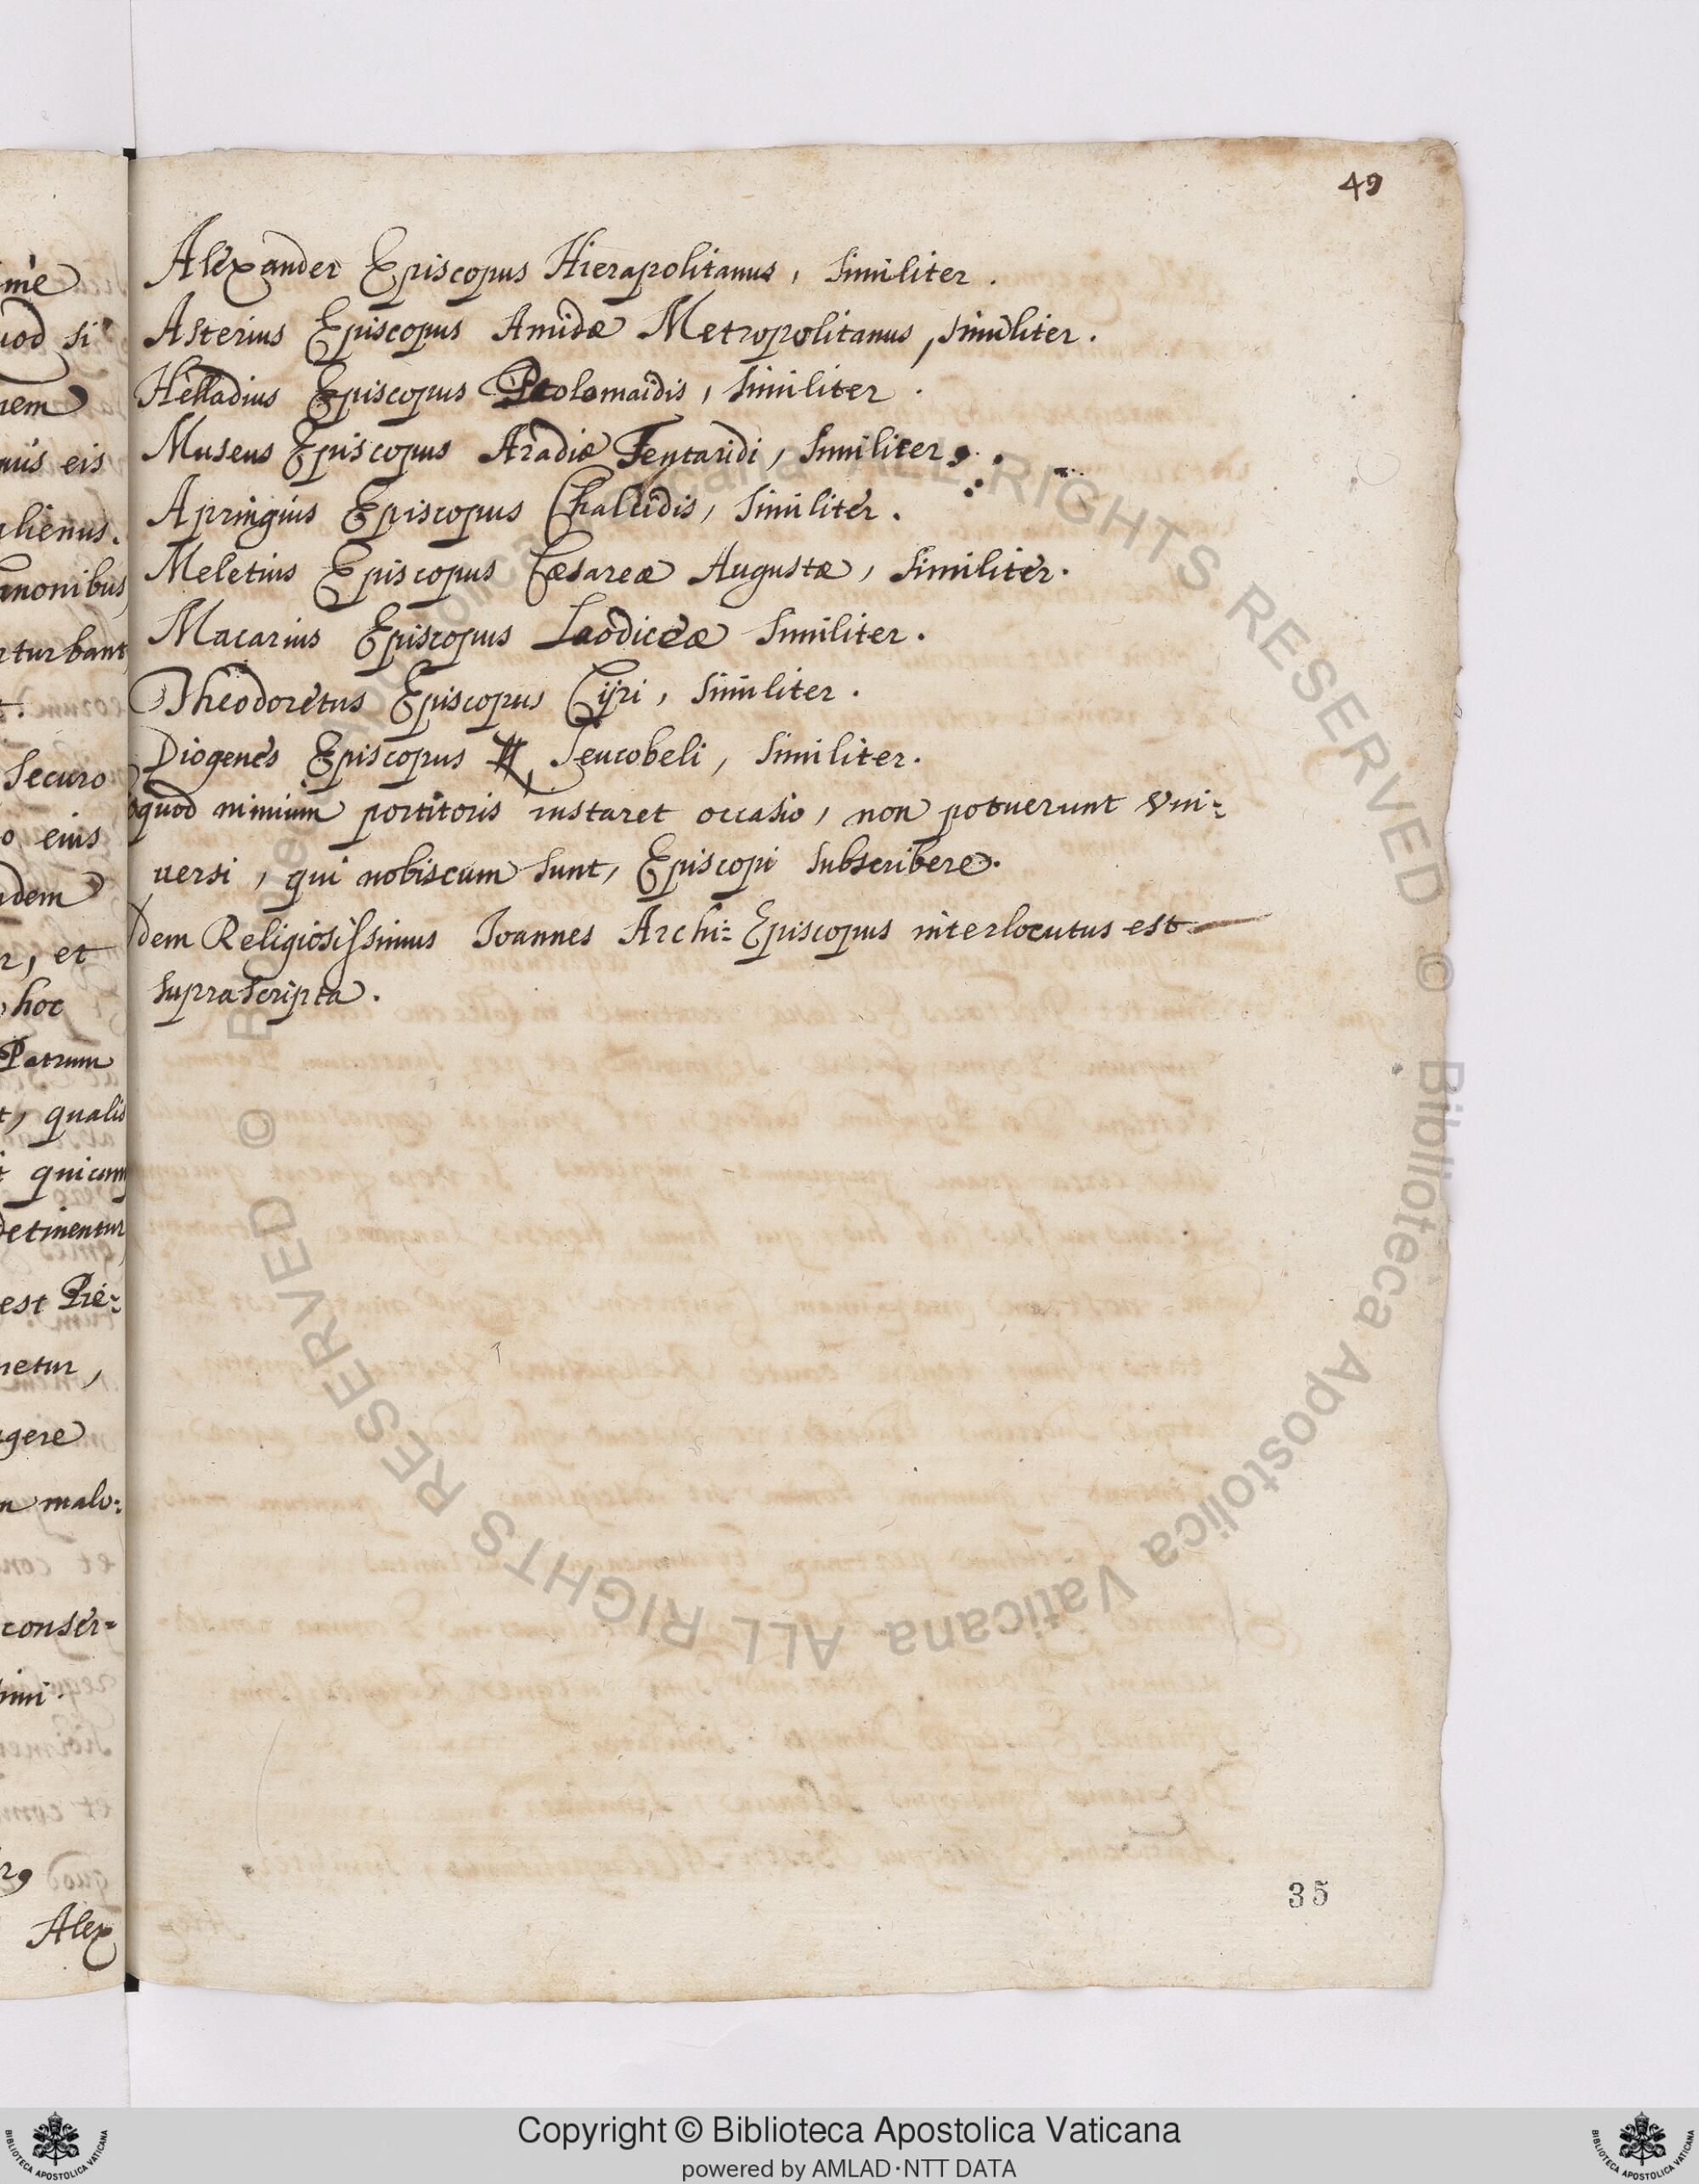 49
Alexander Episcopus Hierapolitanus, similiter.
Asterius Episcopus Amidæ Metropolitanus, similiter.
Helladius Episcopus Ptolomaidis, similiter.
Museus Episcopus Aradiæ Fentaridi, similiter.
Apringius Episcopus Chalcidis, similiter.
Meletius Episcopus Cæsareæ Augustæ, similiter.
Macarius Episcopus Laodiceæ similiter.
Theodoretus Episcopus Cijri, similiter.
Diogenes Episcopus Seucobeli, similiter.
quod nimium portitoris instaret occasio, non potuerunt vni=
uersi, qui nobiscum sunt, Episcopi subscribere.
dem Religiosissimus Ioannes Archi=Episcopus interlocutus est
suprascripta.
35
me
uod si
rem
eis
alienus.
anonibus
rturbant
t.
securo
o eius
adem
r, et
hoc
Patrum
t, qualis
t quicumq
detinentur
est Pie=
netur,
gere
n malo=
conser=
Alex
Biblioteca Apostolica Vaticana ALL RIGHTS RESERVED ©
Biblioteca Apostolica Vaticana ALL RIGHTS RESERVED ©
Copyright © Biblioteca Apostolica Vaticana
powered by AMLAD·NTT DATA
BIBLIOTECA APOSTOLICA VATICANA
BIBLIOTECA APOSTOLICA VATICANA